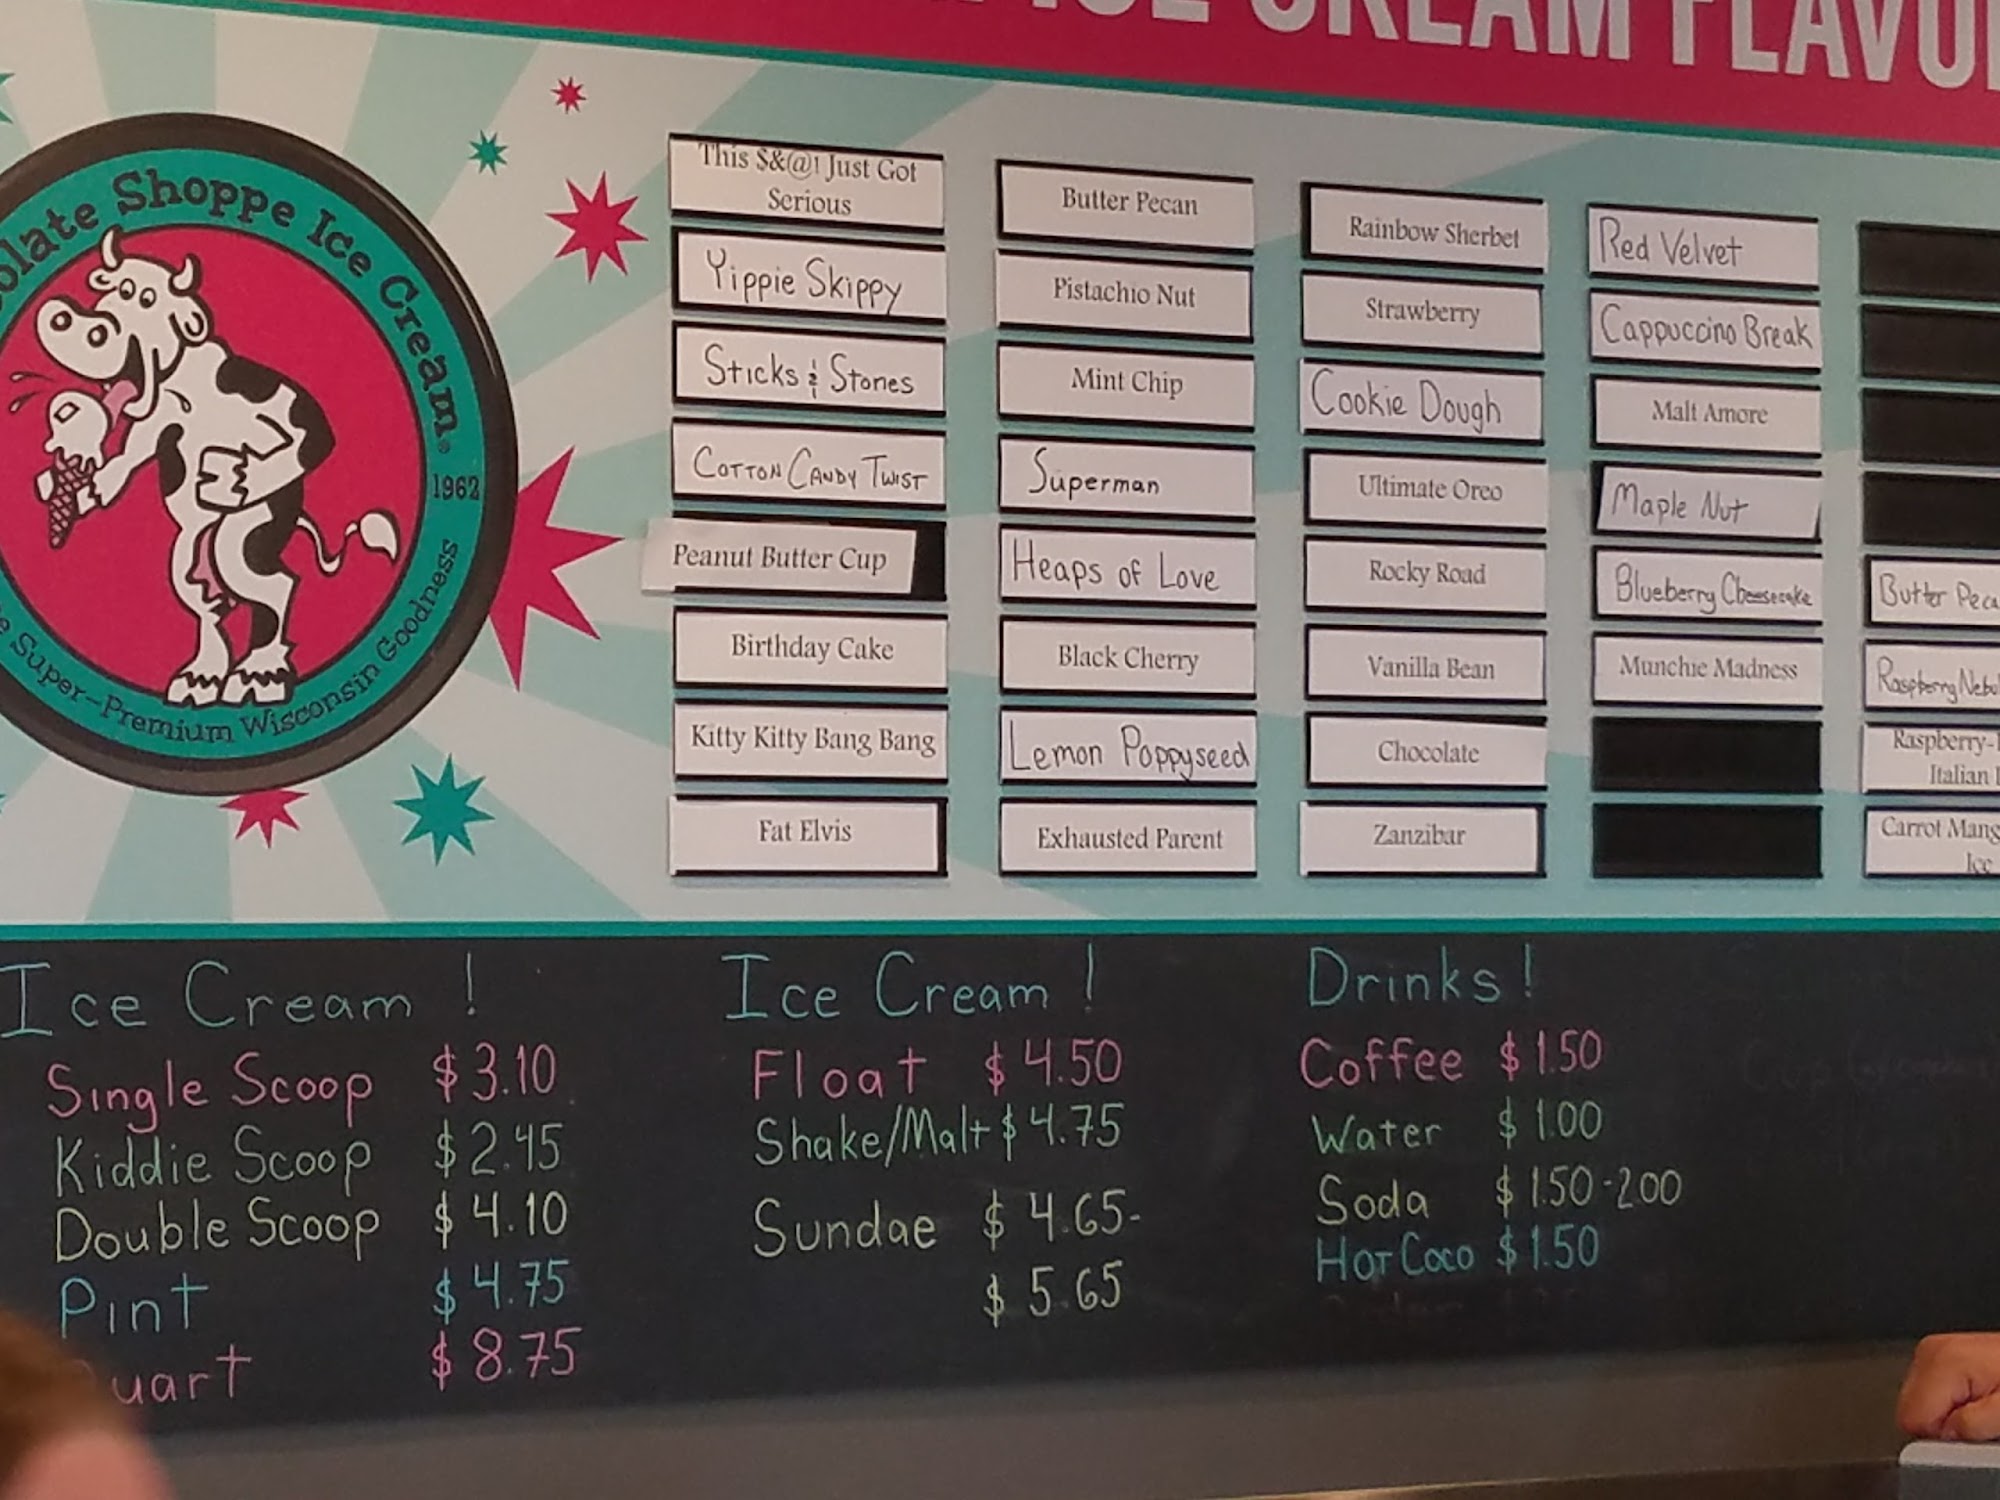 ICE CREAM
Shoppe Ice Cream®
1962
Super-Premium Wisconsin Goodness
This $&@! Just Got
Serious
Yippie Skippy
Sticks & Stones
COTTON CANDY TWIST
Peanut Butter Cup
Birthday Cake
Kitty Kitty Bang Bang
Fat Elvis
Butter Pecan
Pistachio Nut
Mint Chip
Superman
Heaps of Love
Black Cherry
Lemon Poppyseed
Exhausted Parent
Rainbow Sherbet
Strawberry
Cookie Dough
Ultimate Oreo
Rocky Road
Vanilla Bean
Chocolate
Zanzibar
Red Velvet
Cappuccino Break
Malt Amore
Maple Nut
Blueberry Cheesecake
Munchie Madness
Butter
Raspberry
Raspberry-
Italian
Carrot
Ice
Ice Cream !
Single Scoop $3.10
Kiddie Scoop $2.45
Double Scoop $4.10
Pint $4.75
$8.75
Ice Cream !
Float $4.50
Shake/Malt $4.75
Sundae $4.65-
$5.65
Drinks !
Coffee $1.50
Water $1.00
Soda $1.50-2.00
Hot Coco $1.50